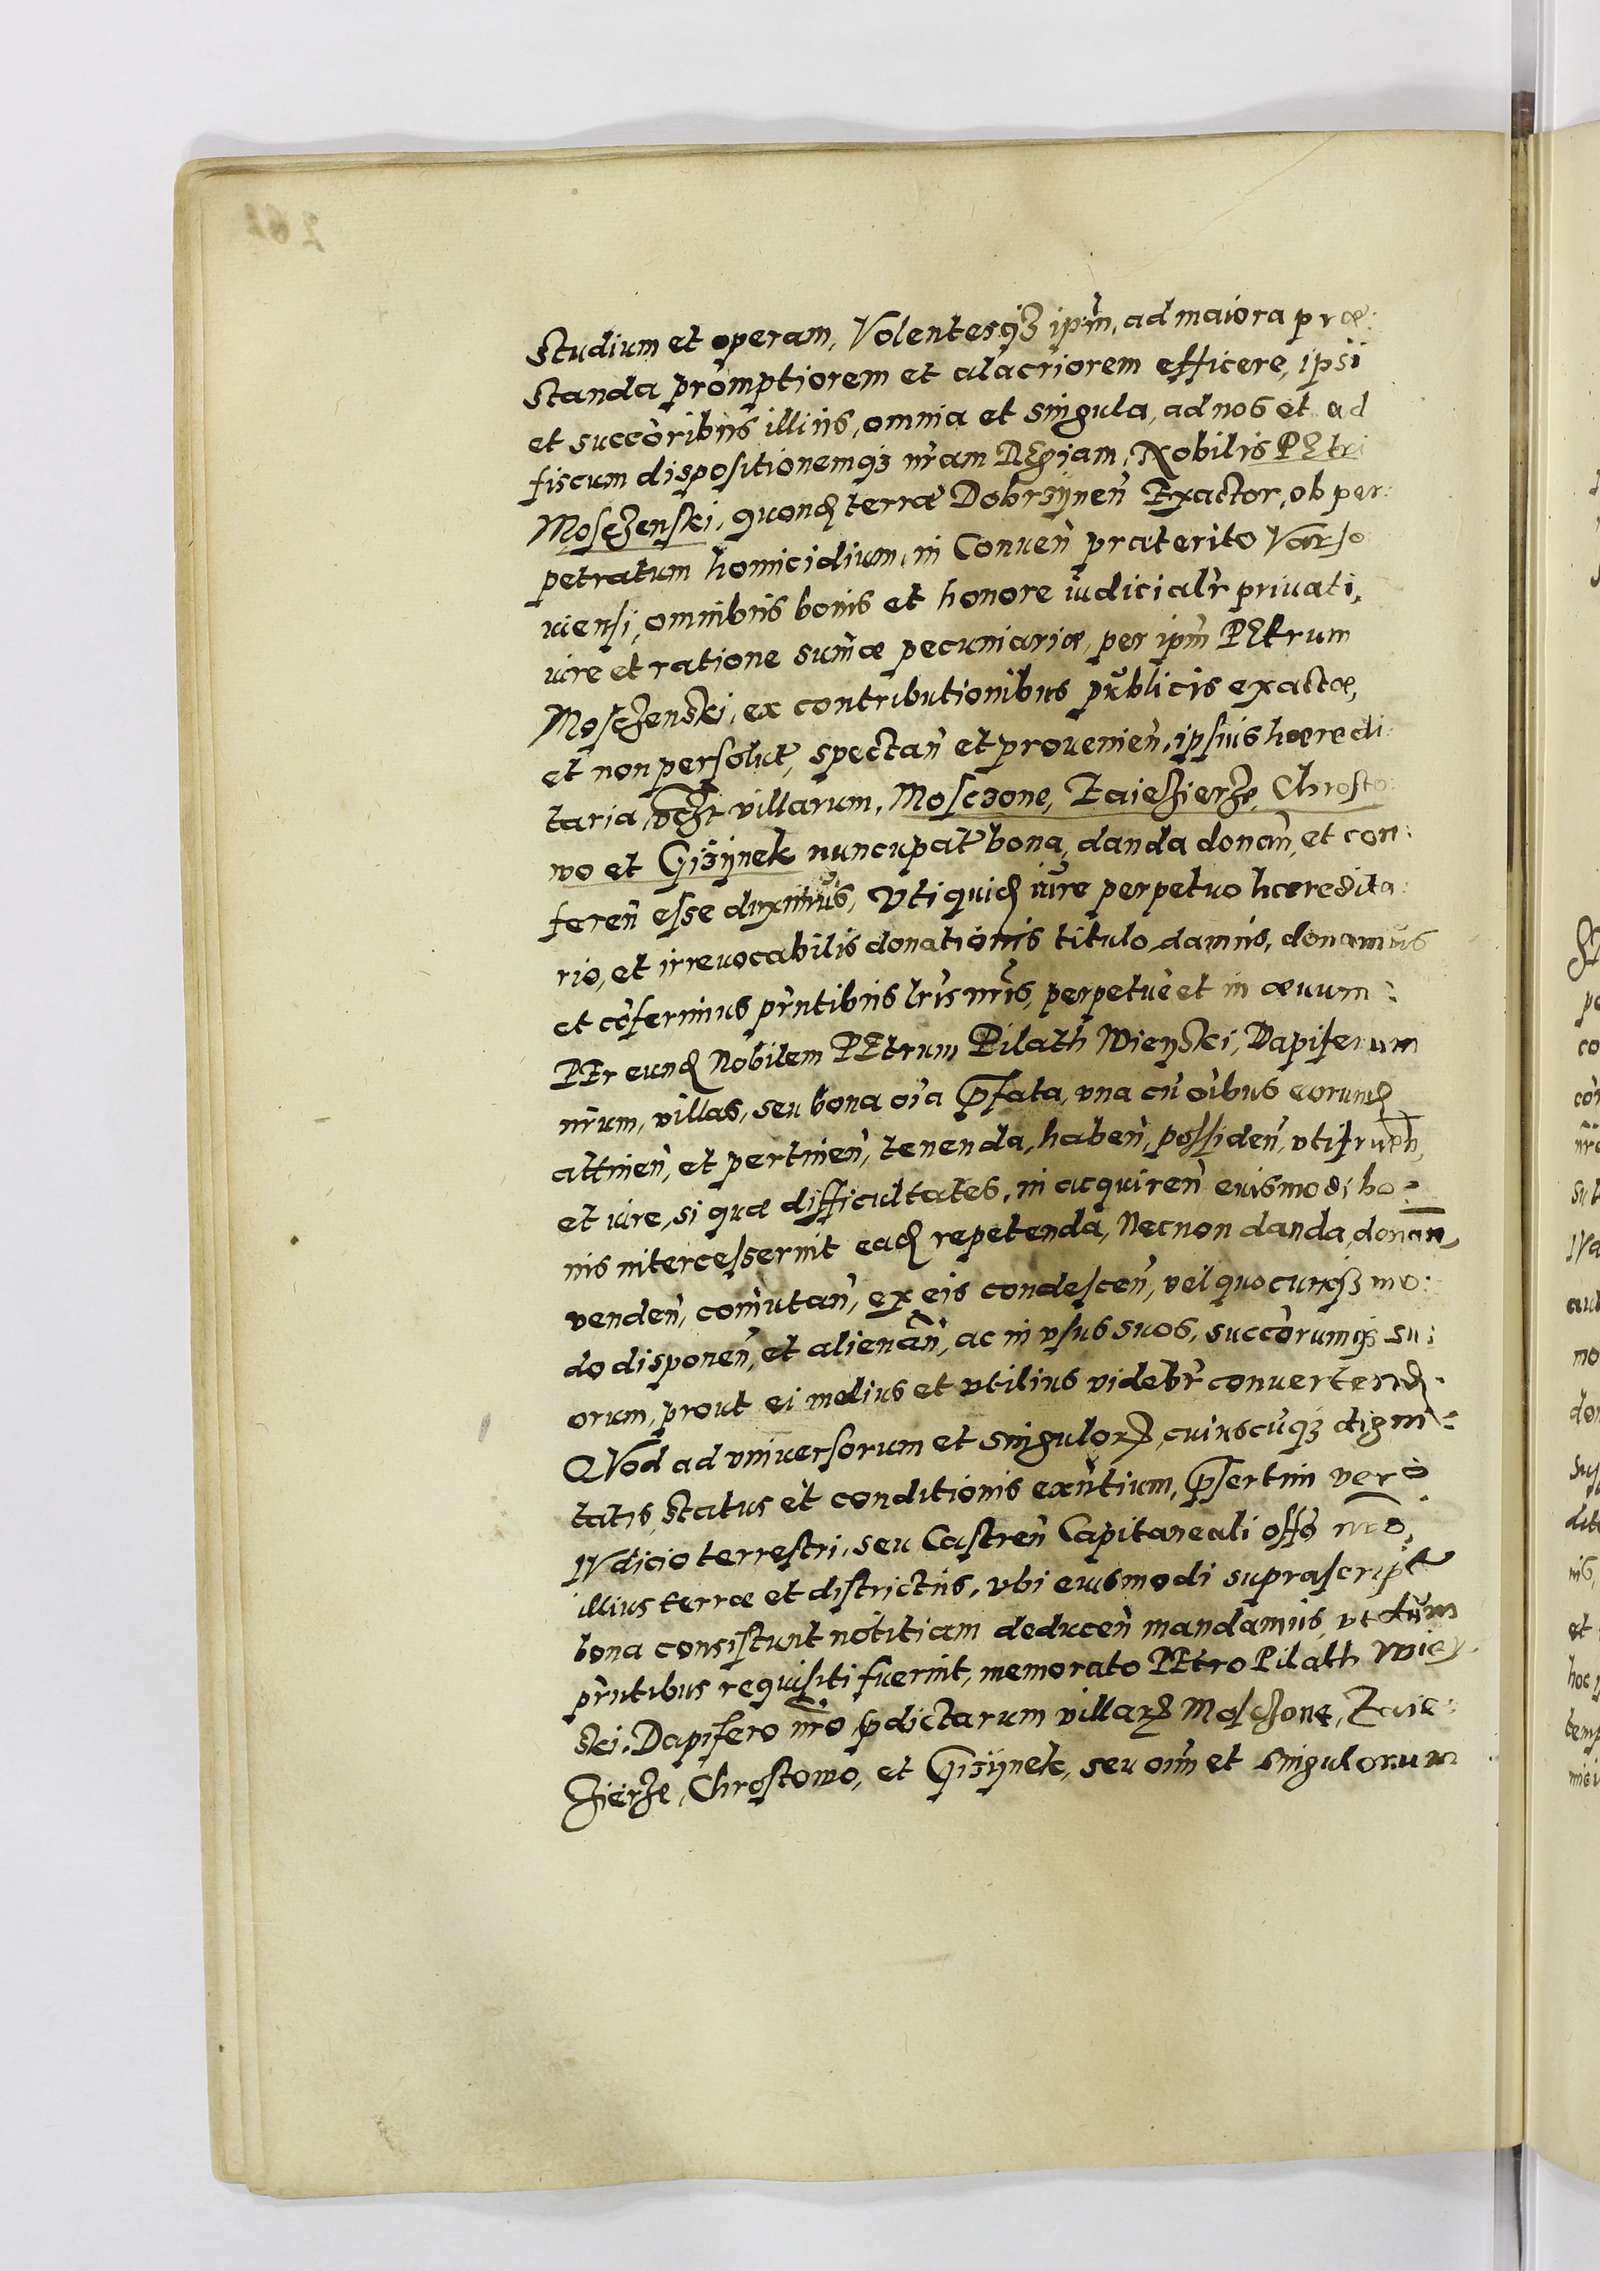 studium et operam, Volentesq3 ipm̃, ad maiora præ:
standa promptiorem et alacriorem efficere, ipsi
et succõribus illius, omnia et singula, ad nos et ad
fiscum dispositionemq3 nr̃am REgiam, Nobilis PEtri
Mosczenski, quond terræ Dobrzÿneñ Exactor, ob per:
petratum homicidium, in Conueñ præterito Varso
uiensi, omnibus bonis et honore iudicialr̃ priuati,
iure et ratione sum̃æ pecuniariæ, per ipm̃ PEtrum
Mosczenski, ex contributionibus publicis exactæ,
et non persolut, spectañ et proueniеñ, ipsius hæredi
taria, villarum, Mosczone, Zaiezierze, Chrosto:
wo et Gizÿnek nuncupat bona, danda donañ, et con:
fereñ esse duximus, Vti quid iure perpetuo hæredita:
rio, et irreuocabilis donationis titulo damus, donamus
et cõferimus pr̃ntibus lr̃is nr̃is, perpetue et in æuum:
PEr eund Nobilem PEtrum Pilath Wieÿski, Dapiferum
nr̃um, villas, seu bona oĩa p̃fata, vna cũ oĩbus eorumd
attineñ, et pertineñ, tenenda, habeñ, possideñ, vtifrueñ,
et iure, si quæ difficultates, in acquireñ euismodi bo:
nis intercesserint ead repetenda, Necnon danda donañ,
vendeñ, com̃utañ, ex eis condesceñ, vel quocunq3 mo:
do disponeñ, et alienañ, ac in vsus suos, succõrumq3 su:
orum, prout ei melius et vtilius videbr̃ conuertend.
QVod ad vniuersorum et singulor, cuiuscũq3 digni:
tatis, status et conditionis exñtium, p̃sertim vero
IVdicio terrestri, seu Castreñ Capitaneali offõ nr̃o,
illius terræ et districtus, vbi euismodi suprascript
bona consistunt notitiam deduceñ mandamus, vt dum
pr̃ntibus requisiti fuerint, memorato PEtro Pilath Wieÿ
ski, Dapifero nr̃o, p̃dictarum villar Mosczone, Zaie:
zierze, Chrostowo, et Gizÿnek, seu oĩm et singulorum